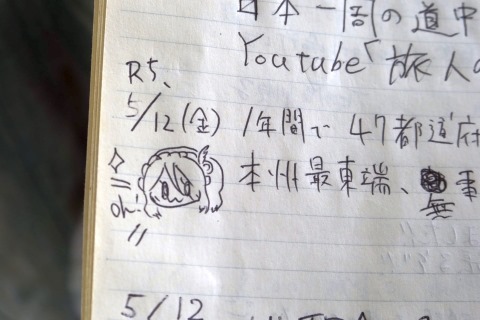 日本一周の道中
Youtube「旅人の
R5、
5/12(金) 1年間で47都道府
本州最東端、無事
oh!
〃
5/12